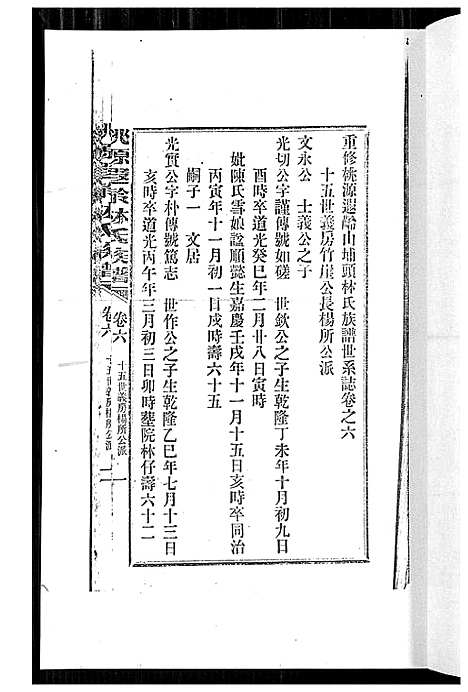 重修桃源遐齡山埔頭林氏族譜世系誌卷之六
十五世義房竹崖公長楊所公派
文永公　士義公之子
光切公字謹傳號如磋　世欽公之子生乾隆丁未年十月初九日
酉時卒道光癸巳年二月廿八日寅時
妣陳氏雪娘諡順懿生嘉慶壬戌年十一月十五日亥時卒同治
丙寅年十一月初一日戌時壽六十五
嗣子一　文居
光實公字朴傳號篤志　世作公之子生乾隆乙巳年七月十三日
亥時卒道光丙午年三月初三日卯時塟院林仔壽六十二
桃源 林氏族譜
卷六
十五世義房楊所公派
一